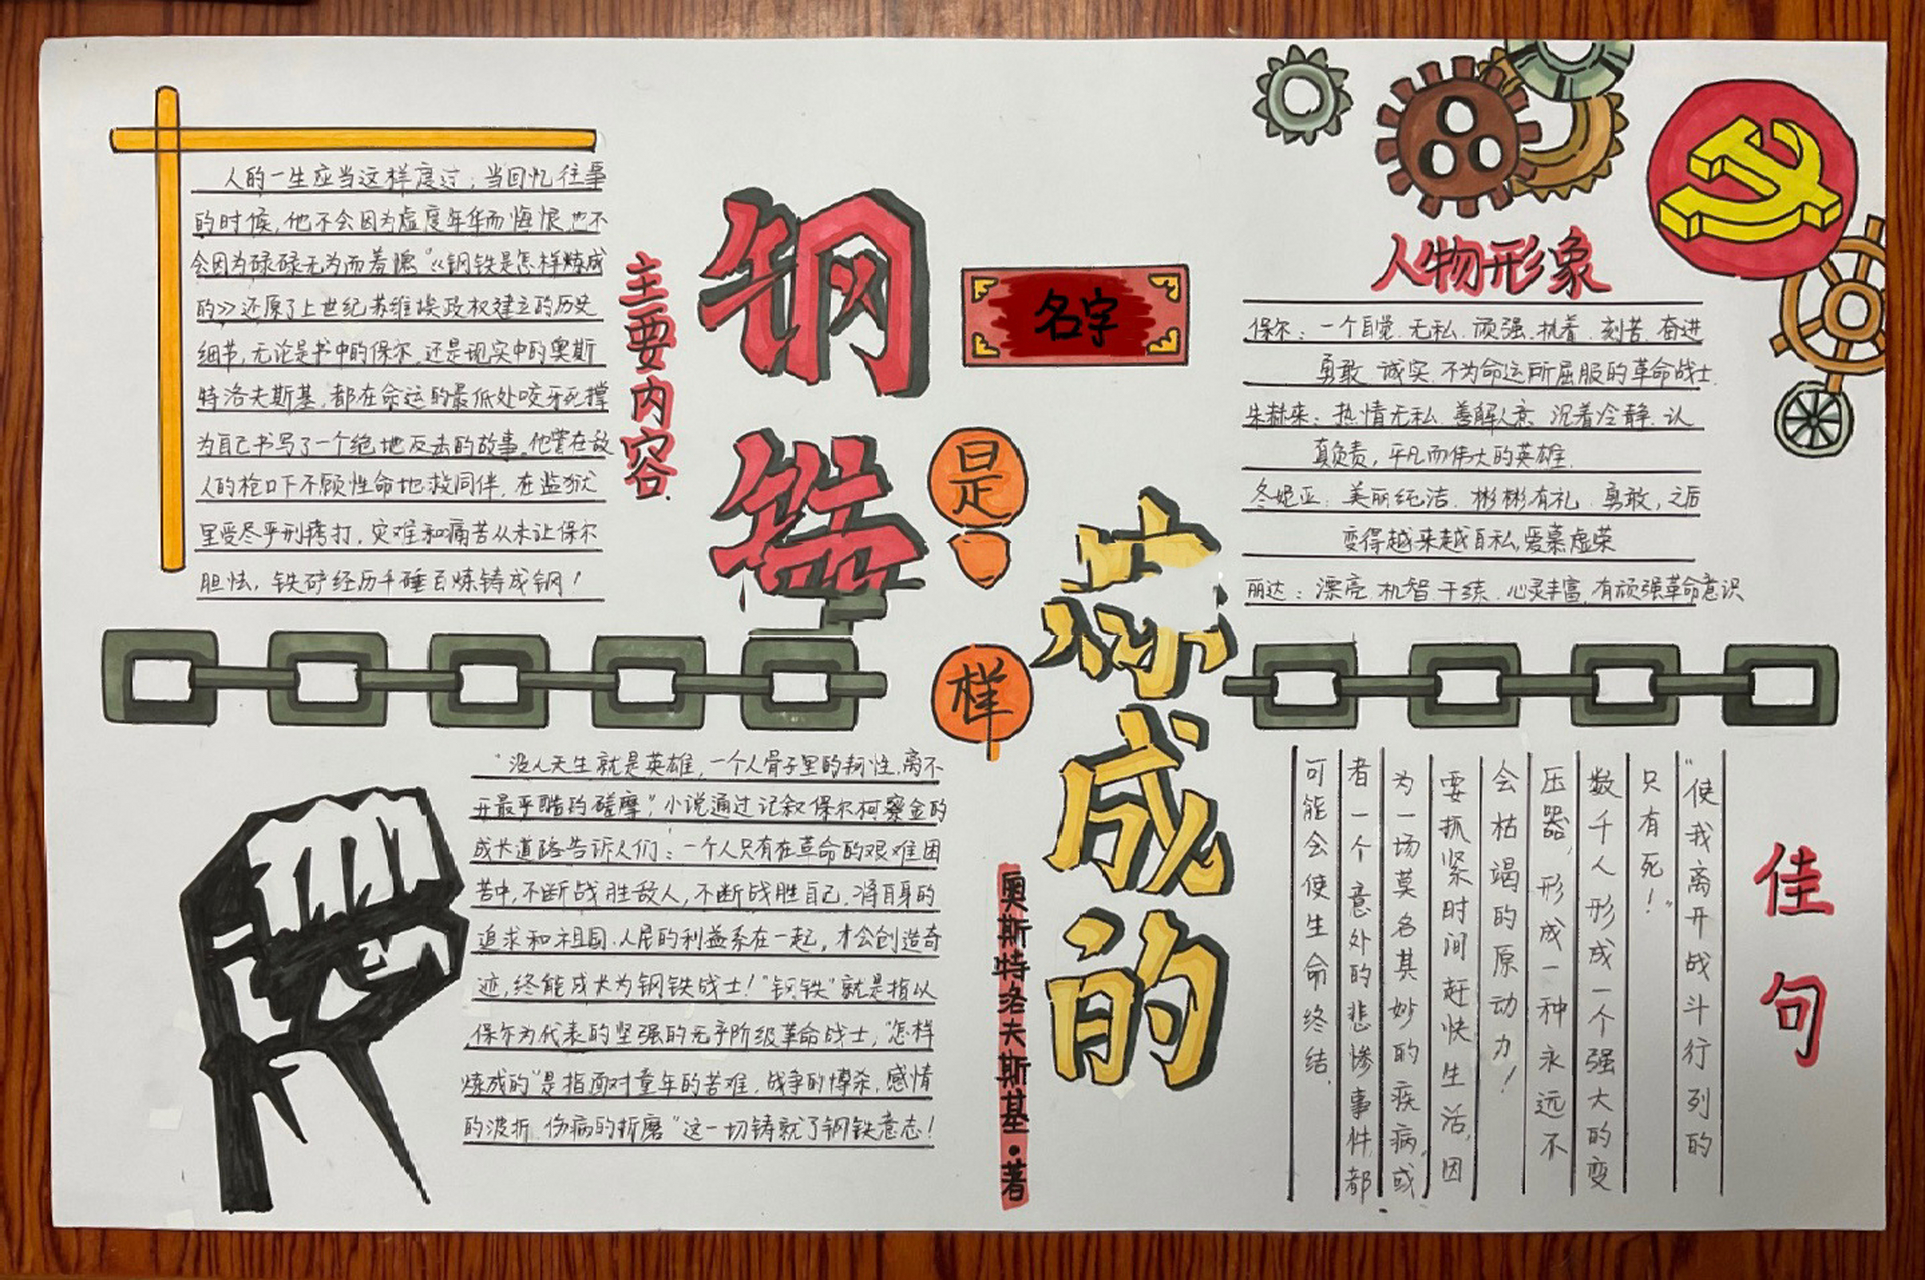 人的一生应当这样度过：当回忆往事
的时候，他不会因为虚度年华而悔恨，也不
会因为碌碌无为而羞愧。"《钢铁是怎样炼成
的》还原了上世纪苏维埃政权建立的历史
细节，无论是书中的保尔，还是现实中的奥斯
特洛夫斯基，都在命运的最低处咬牙死撑
为自己书写了一个绝地反击的故事。他曾在敌
人的枪口下不顾性命地救同伴，在监狱
里受尽严刑拷打，灾难和痛苦从未让保尔
胆怯，铁矿经历千锤百炼铸成钢！
主要内容
钢
名字
是
样
炼成的
奥斯特洛夫斯基·著
人物形象
保尔：一个自觉、无私、顽强、执着、刻苦、奋进
勇敢、诚实、不为命运所屈服的革命战士.
朱赫来：热情无私、善解人意、沉着冷静、认
真负责，平凡而伟大的英雄.
冬妮亚：美丽纯洁、彬彬有礼、勇敢，之后
变得越来越自私，爱慕虚荣
丽达：漂亮、机智、干练、心灵丰富，有顽强革命意识
"没人天生就是英雄，一个人骨子里的韧性，离不
开最严酷的磋摩"，小说通过记叙保尔柯察金的
成长道路告诉人们：一个人只有在革命的艰难困
苦中，不断战胜敌人，不断战胜自己，将自身的
追求和祖国、人民的利益系在一起，才会创造奇
迹，终能成长为钢铁战士！"钢铁"就是指以
保尔为代表的坚强的无产阶级革命战士，"怎样
炼成的"是指面对童年的苦难，战争的博杀，感情
的波折，伤病的折磨"这一切铸就了钢铁意志！
佳句
"使我离开战斗行列的
只有死！"
数千人形成一个强大的变
压器，形成一种永远不
会枯竭的原动力！
要抓紧时间赶快生活，因
为一场莫名其妙的疾病，或
者一个意外的悲惨事件，都
可能会使生命终结.